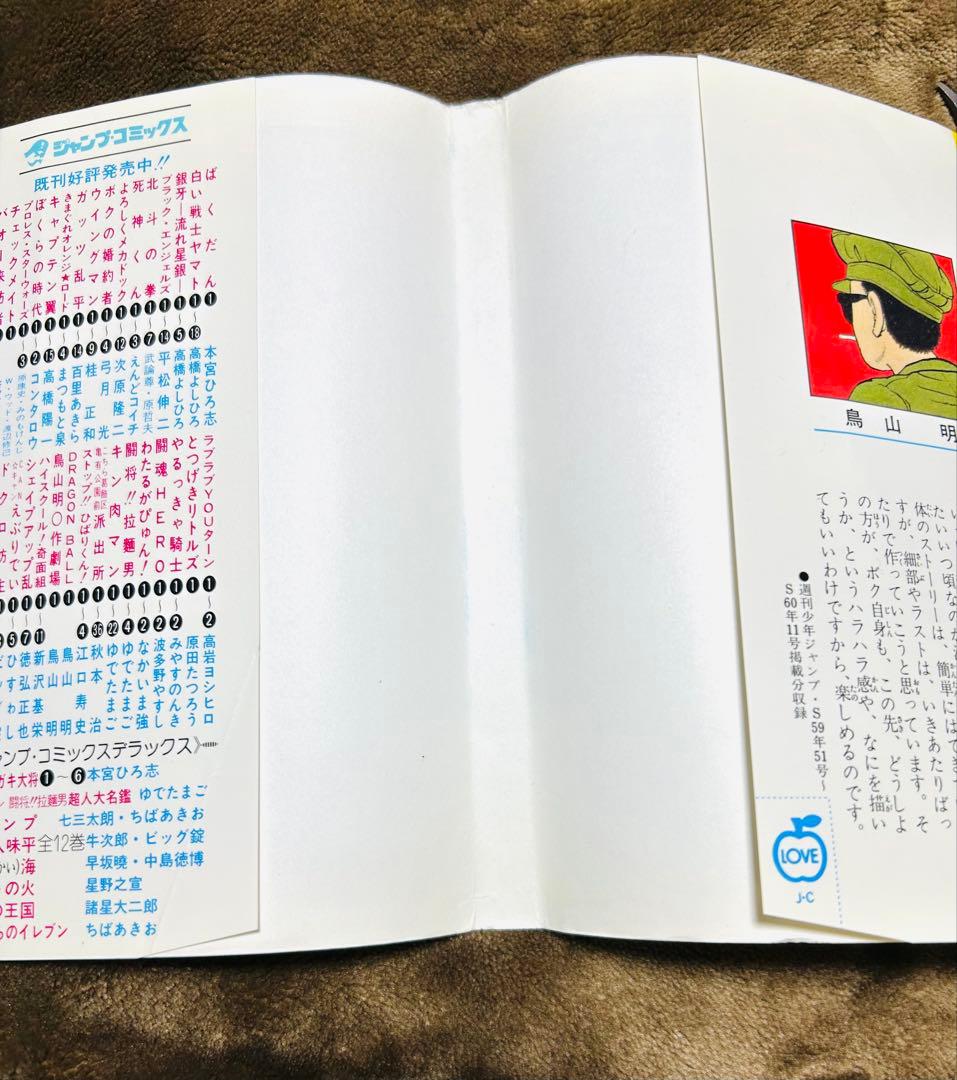 ジャンプ・コミックス
既刊好評発売中!!
ばくだん ❶ 本宮ひろ志
白い戦士ヤマト ❶〜⓲ 高橋よしひろ
銀牙―流れ星銀― ❶〜❺ 高橋よしひろ
ブラック・エンジェルズ ❶〜⓮ 平松伸二
北斗の拳 ❶〜❼ 武論尊・原哲夫
死神くん ❶〜❸ えんどコイチ
よろしくメカドック ❶〜⓬ 次原隆二
ボクの婚約者 ❶〜❹ 弓月光
ウイングマン ❶〜❾ 桂正和
ガッツ乱平 ❶〜⓮ 百里あきら
きまぐれオレンジ★ロード ❶〜❹ まつもと泉
キャプテン翼 ❶〜⓯ 高橋陽一
ぼくらの時代 ❶〜❷ コンタロウ
プロレス・スターウォーズ ❶〜❸ 原康史・みのもけんじ
チェックメイト ❶ W・ウッド・渡辺修己
ラブラブYOUターン ❶〜❷ 高岩ヨシヒロ
とつげきリトルズ ❶ 原田
やるっきゃ騎士 ❶〜❷ みやすのんき
闘魂HERO ❶〜❷ 波多野
わたるがぴゅん! ❶〜❷ なかいま強
闘将!!拉麺男 ❶〜❹ ゆでたまご
キン肉マン ❶〜㉒ ゆでたまご
こちら葛飾区亀有公園前派出所 ❶〜㊱ 秋本治
ストップ!!ひばりくん! ❶〜❹ 江口寿史
DRAGON BALL ❶ 鳥山明
鳥山明○作劇場 ❶ 鳥山明
ハイスクール!奇面組 ❶〜⓫ 新沢基栄
シェイプアップ乱 ❶〜❼ 徳弘正也
ンプ・コミックスデラックス》
ガキ大将❶〜❻ 本宮ひろ志
闘将!!拉麺男超人大名鑑 ゆでたまご
ンプ 七三太朗・ちばあきお
人味平 全12巻 牛次郎・ビッグ錠
海 早坂暁・中島徳博
の火 星野之宣
の王国 諸星大二郎
のイレブン ちばあきお
鳥山明
体のストーリーは、簡単にはでき
すが、細部やラストは、いきあたりばっ
たりで作っていこうと思っています。そ
の方が、ボク自身も、この先、どうしよ
うか、というハラハラ感や、なにを描い
てもいいわけですから、楽しめるのです。
●週刊少年ジャンプ・S59年51号〜
S60年11号掲載分収録
LOVE
J・C